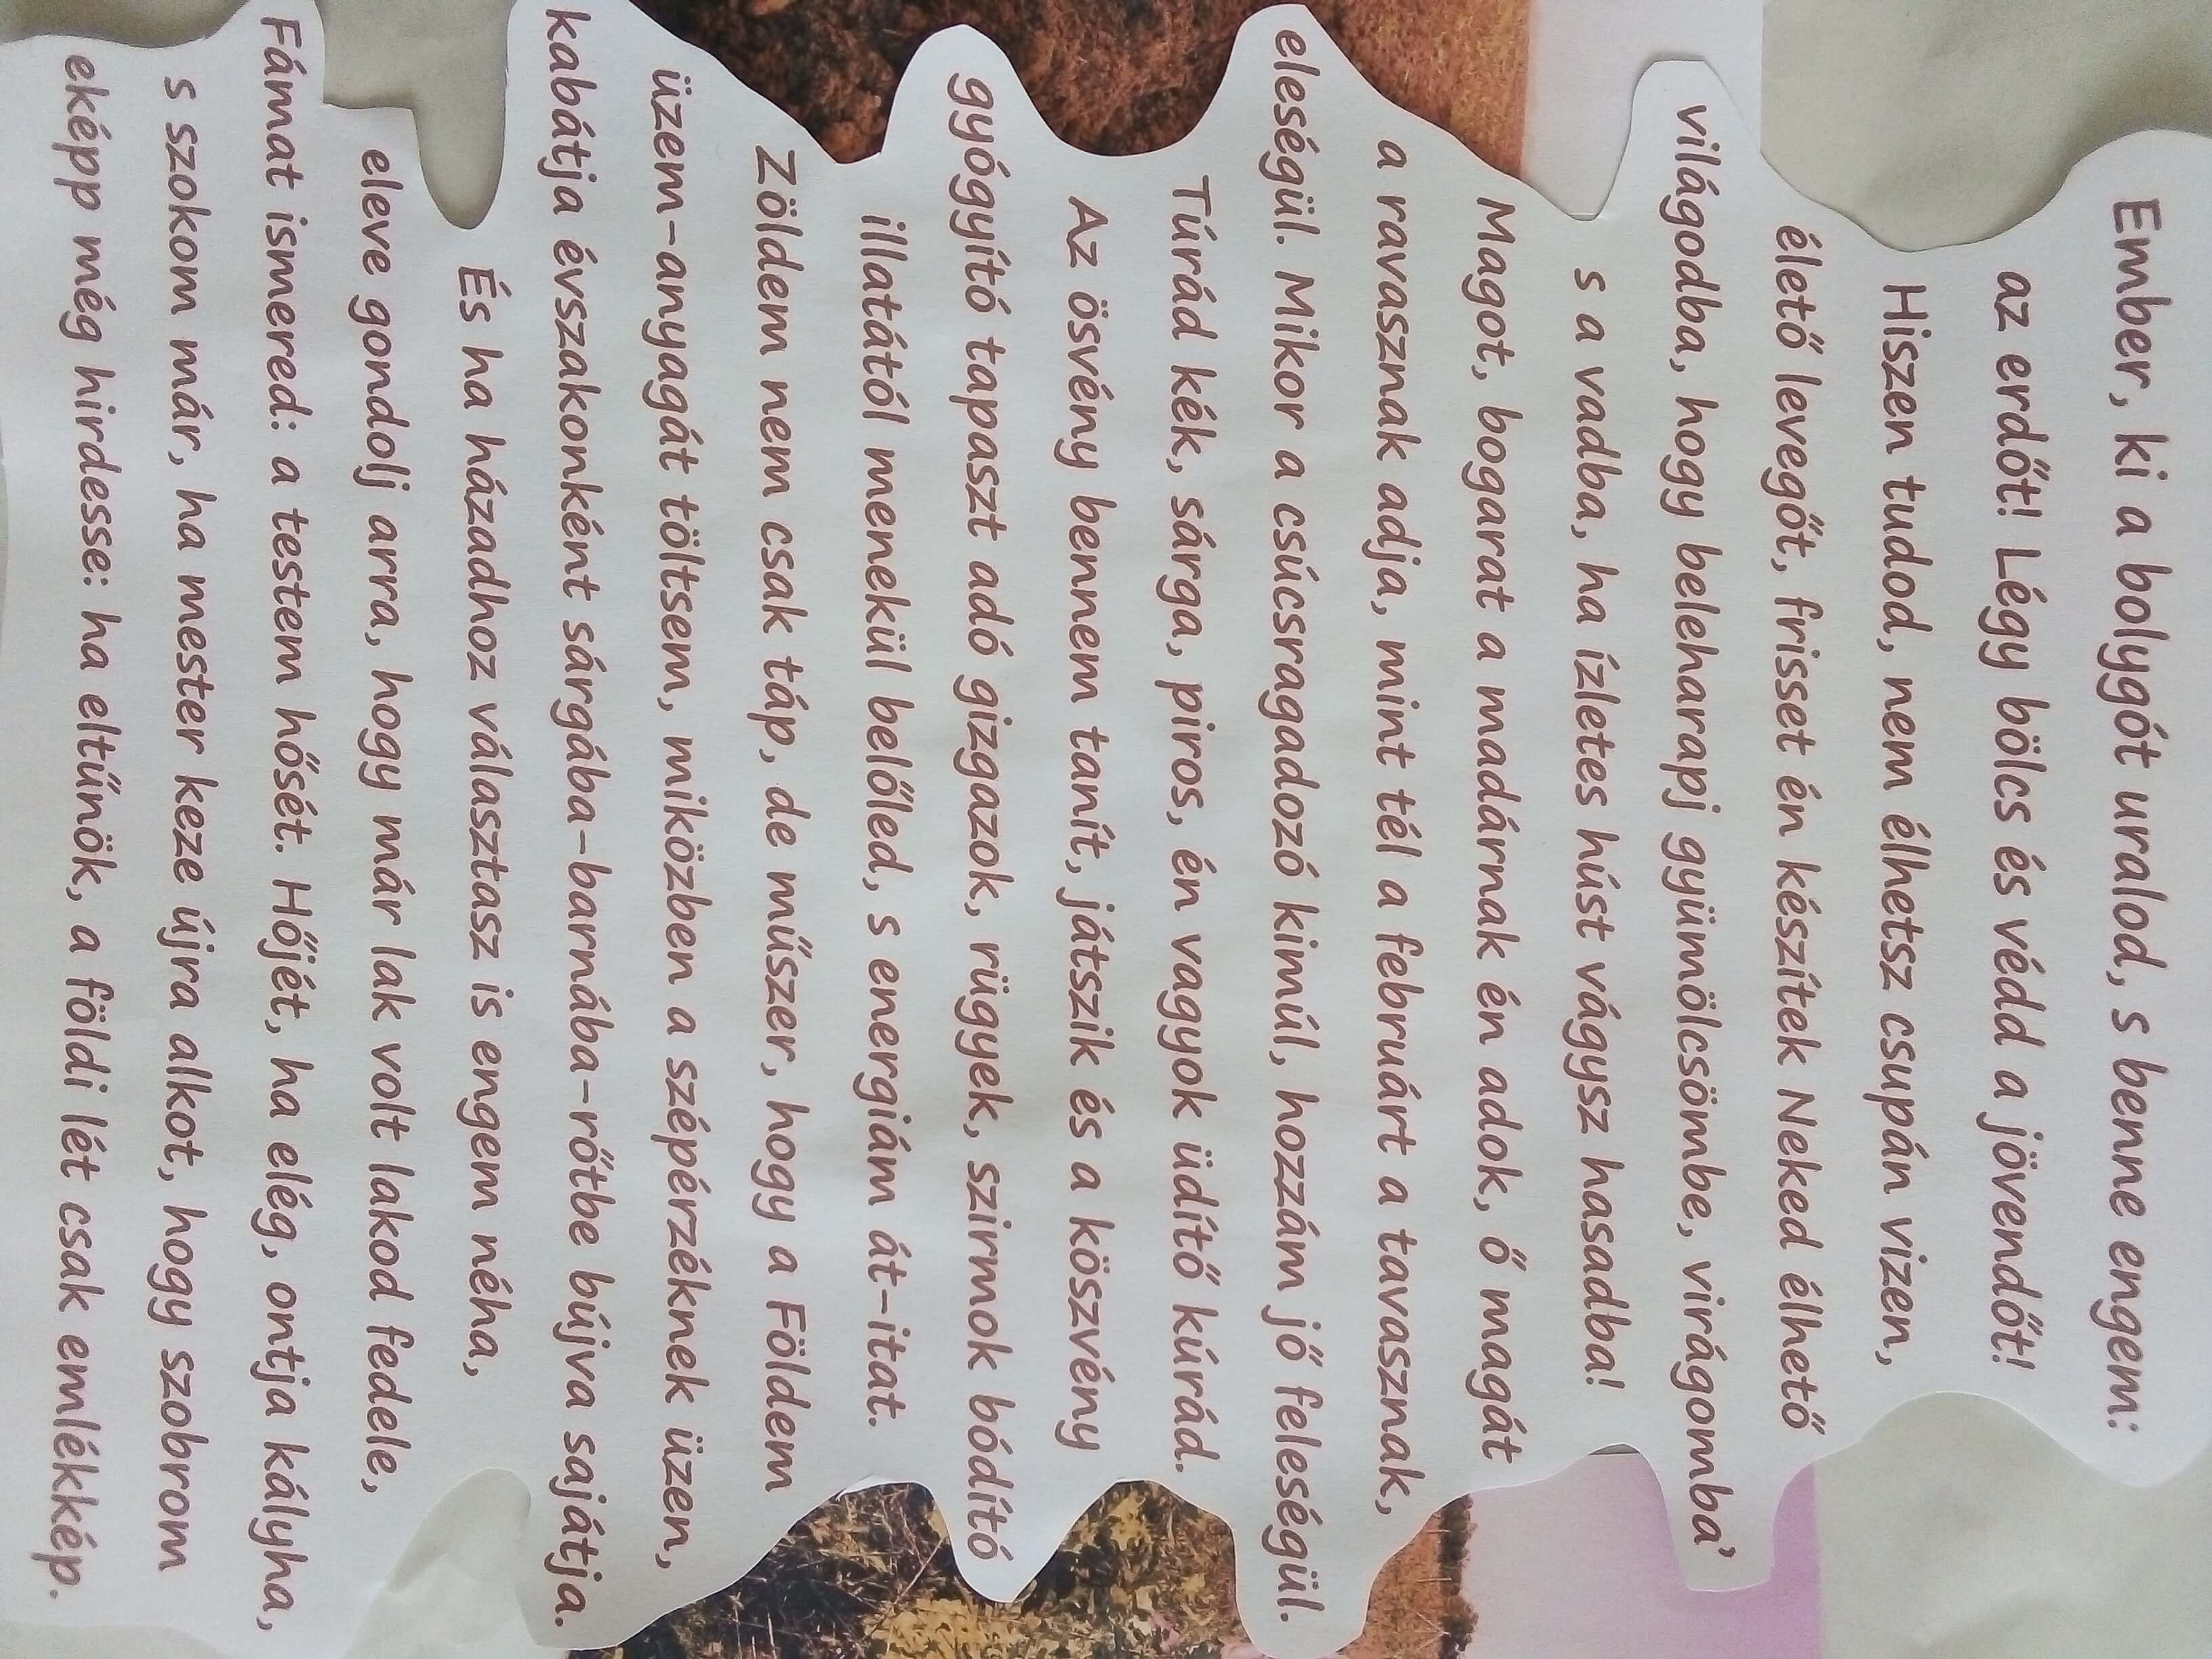 Ember, ki a bolygót uralod, s benne engem:
az erdőt! Légy bölcs és védd a jövendőt!
Hiszen tudod, nem élhetsz csupán vizen,
éltető levegőt, frisset én készítek Neked élhető
világodba, hogy beleharapj gyümölcsömbe, virágomba'
s a vadba, ha ízletes húst vágysz hasadba!
Magot, bogarat a madárnak én adok, ő magát
a ravasznak adja, mint tél a februárt a tavasznak,
eleségül. Mikor a csúcsragadozó kimúl, hozzám jő feleségül.
Túrád kék, sárga, piros, én vagyok üdítő kúrád.
Az ösvény bennem tanít, játszik és a köszvény
gyógyító tapaszt adó gizgazok, rügyek, szirmok bódító
illatától menekül belőled, s energiám át-itat.
Zöldem nem csak táp, de műszer, hogy a Földem
üzem-anyagát töltsem, miközben a szépérzéknek üzen,
kabátja évszakonként sárgába-barnába-rőtbe bújva sajátja.
És ha házadhoz választasz is engem néha,
eleve gondolj arra, hogy már lak volt lakod fedele,
Fámat ismered: a testem hősét. Hőjét, ha elég, ontja kályha,
s szokom már, ha mester keze újra alkot, hogy szobrom
eképp még hirdesse: ha eltűnök, a földi lét csak emlékkép.